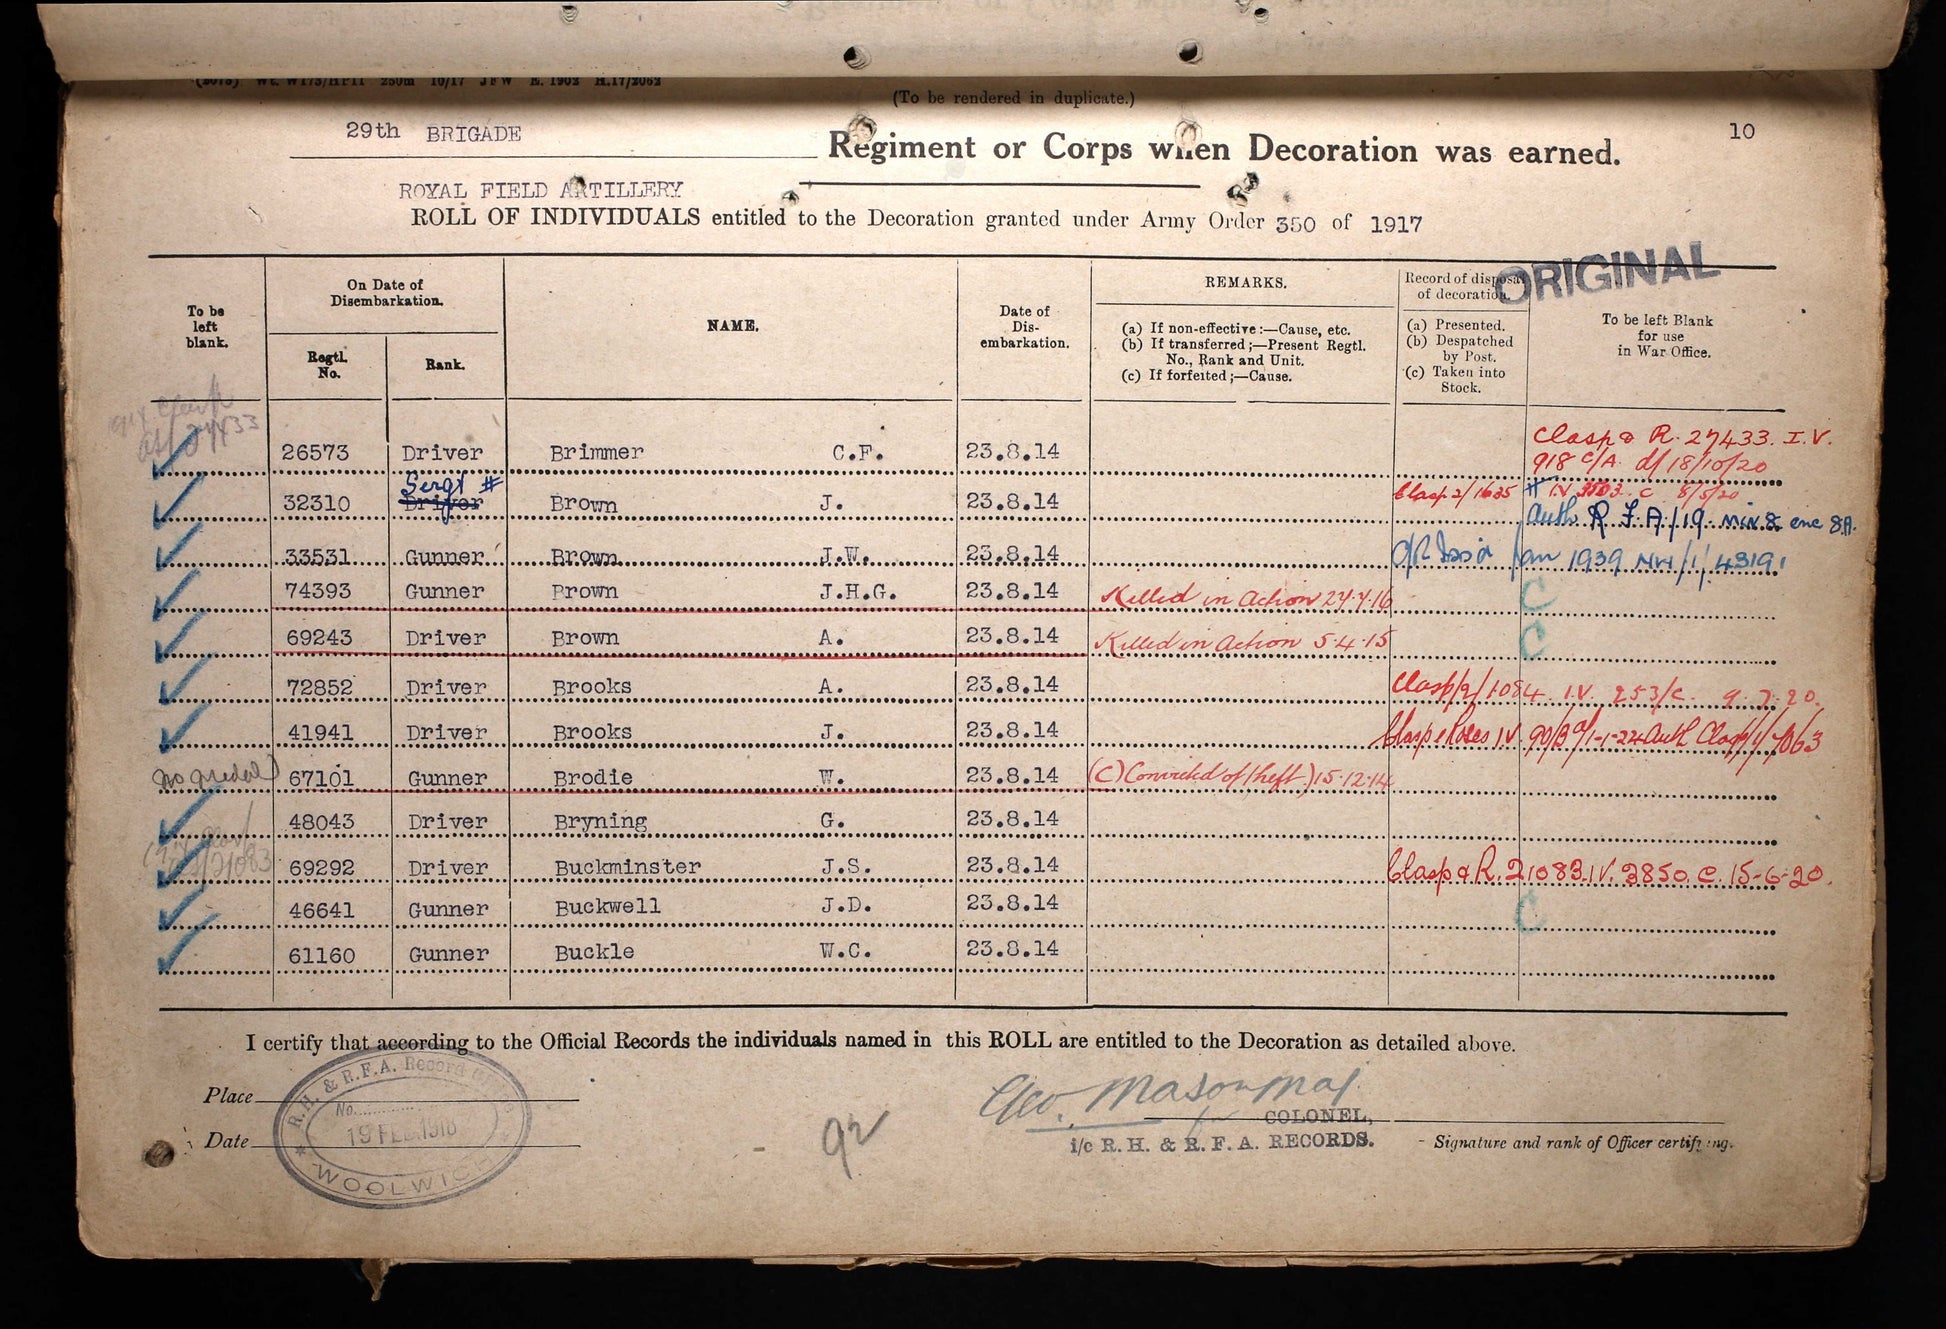 (2078) Wt. W173/HP11 250m 10/17 J F W E. 1902 H.17/2062
(To be rendered in duplicate.)
29th BRIGADE Regiment or Corps when Decoration was earned. 10
ROYAL FIELD ARTILLERY
ROLL OF INDIVIDUALS entitled to the Decoration granted under Army Order 350 of 1917
ORIGINAL
To be left blank.
On Date of Disembarkation.
Regtl. No.
Rank.
NAME.
Date of Dis-embarkation.
REMARKS.
(a) If non-effective :—Cause, etc.
(b) If transferred ;—Present Regtl. No., Rank and Unit.
(c) If forfeited ;—Cause.
Record of disposal of decoration.
(a) Presented.
(b) Despatched by Post.
(c) Taken into Stock.
To be left Blank for use in War Office.
27433
Clasp & R. 27433. I.V.
26573 Driver Brimmer C.F. 23.8.14 918 C/A d/ 18/10/20
Sergt #
32310 Driver Brown J. 23.8.14 Clasp 2/1635 # I.V. 3503 C 8/5/20
Auth R F A/19 Min 8 enc 8A.
33531 Gunner Brown J.W. 23.8.14 Jan 1939 NW/1/43191
74393 Gunner Brown J.H.G. 23.8.14 Killed in Action 27.7.16 C
69243 Driver Brown A. 23.8.14 Killed in Action 5.4.15 C
72852 Driver Brooks A. 23.8.14 Clasp/2/1084 I.V. 253/C. 9.7.20.
41941 Driver Brooks J. 23.8.14 Clasp & Roses I.V. 90/B d/1-1-24 Auth Clasp/1/7063
No medal 67101 Gunner Brodie W. 23.8.14 (C) Convicted of theft) 15.12.14
48043 Driver Bryning G. 23.8.14
69292 Driver Buckminster J.S. 23.8.14 Clasp & R. 21083. I.V. 3850. C. 15-6-20.
46641 Gunner Buckwell J.D. 23.8.14 C
61160 Gunner Buckle W.C. 23.8.14
I certify that according to the Official Records the individuals named in this ROLL are entitled to the Decoration as detailed above.
Place
Date
R.H. & R.F.A. Record
No.
19 FEB 1918
WOOLWICH
92
Geo. Mason Maj
COLONEL,
i/c R. H. & R. F. A. RECORDS.
Signature and rank of Officer certifying.